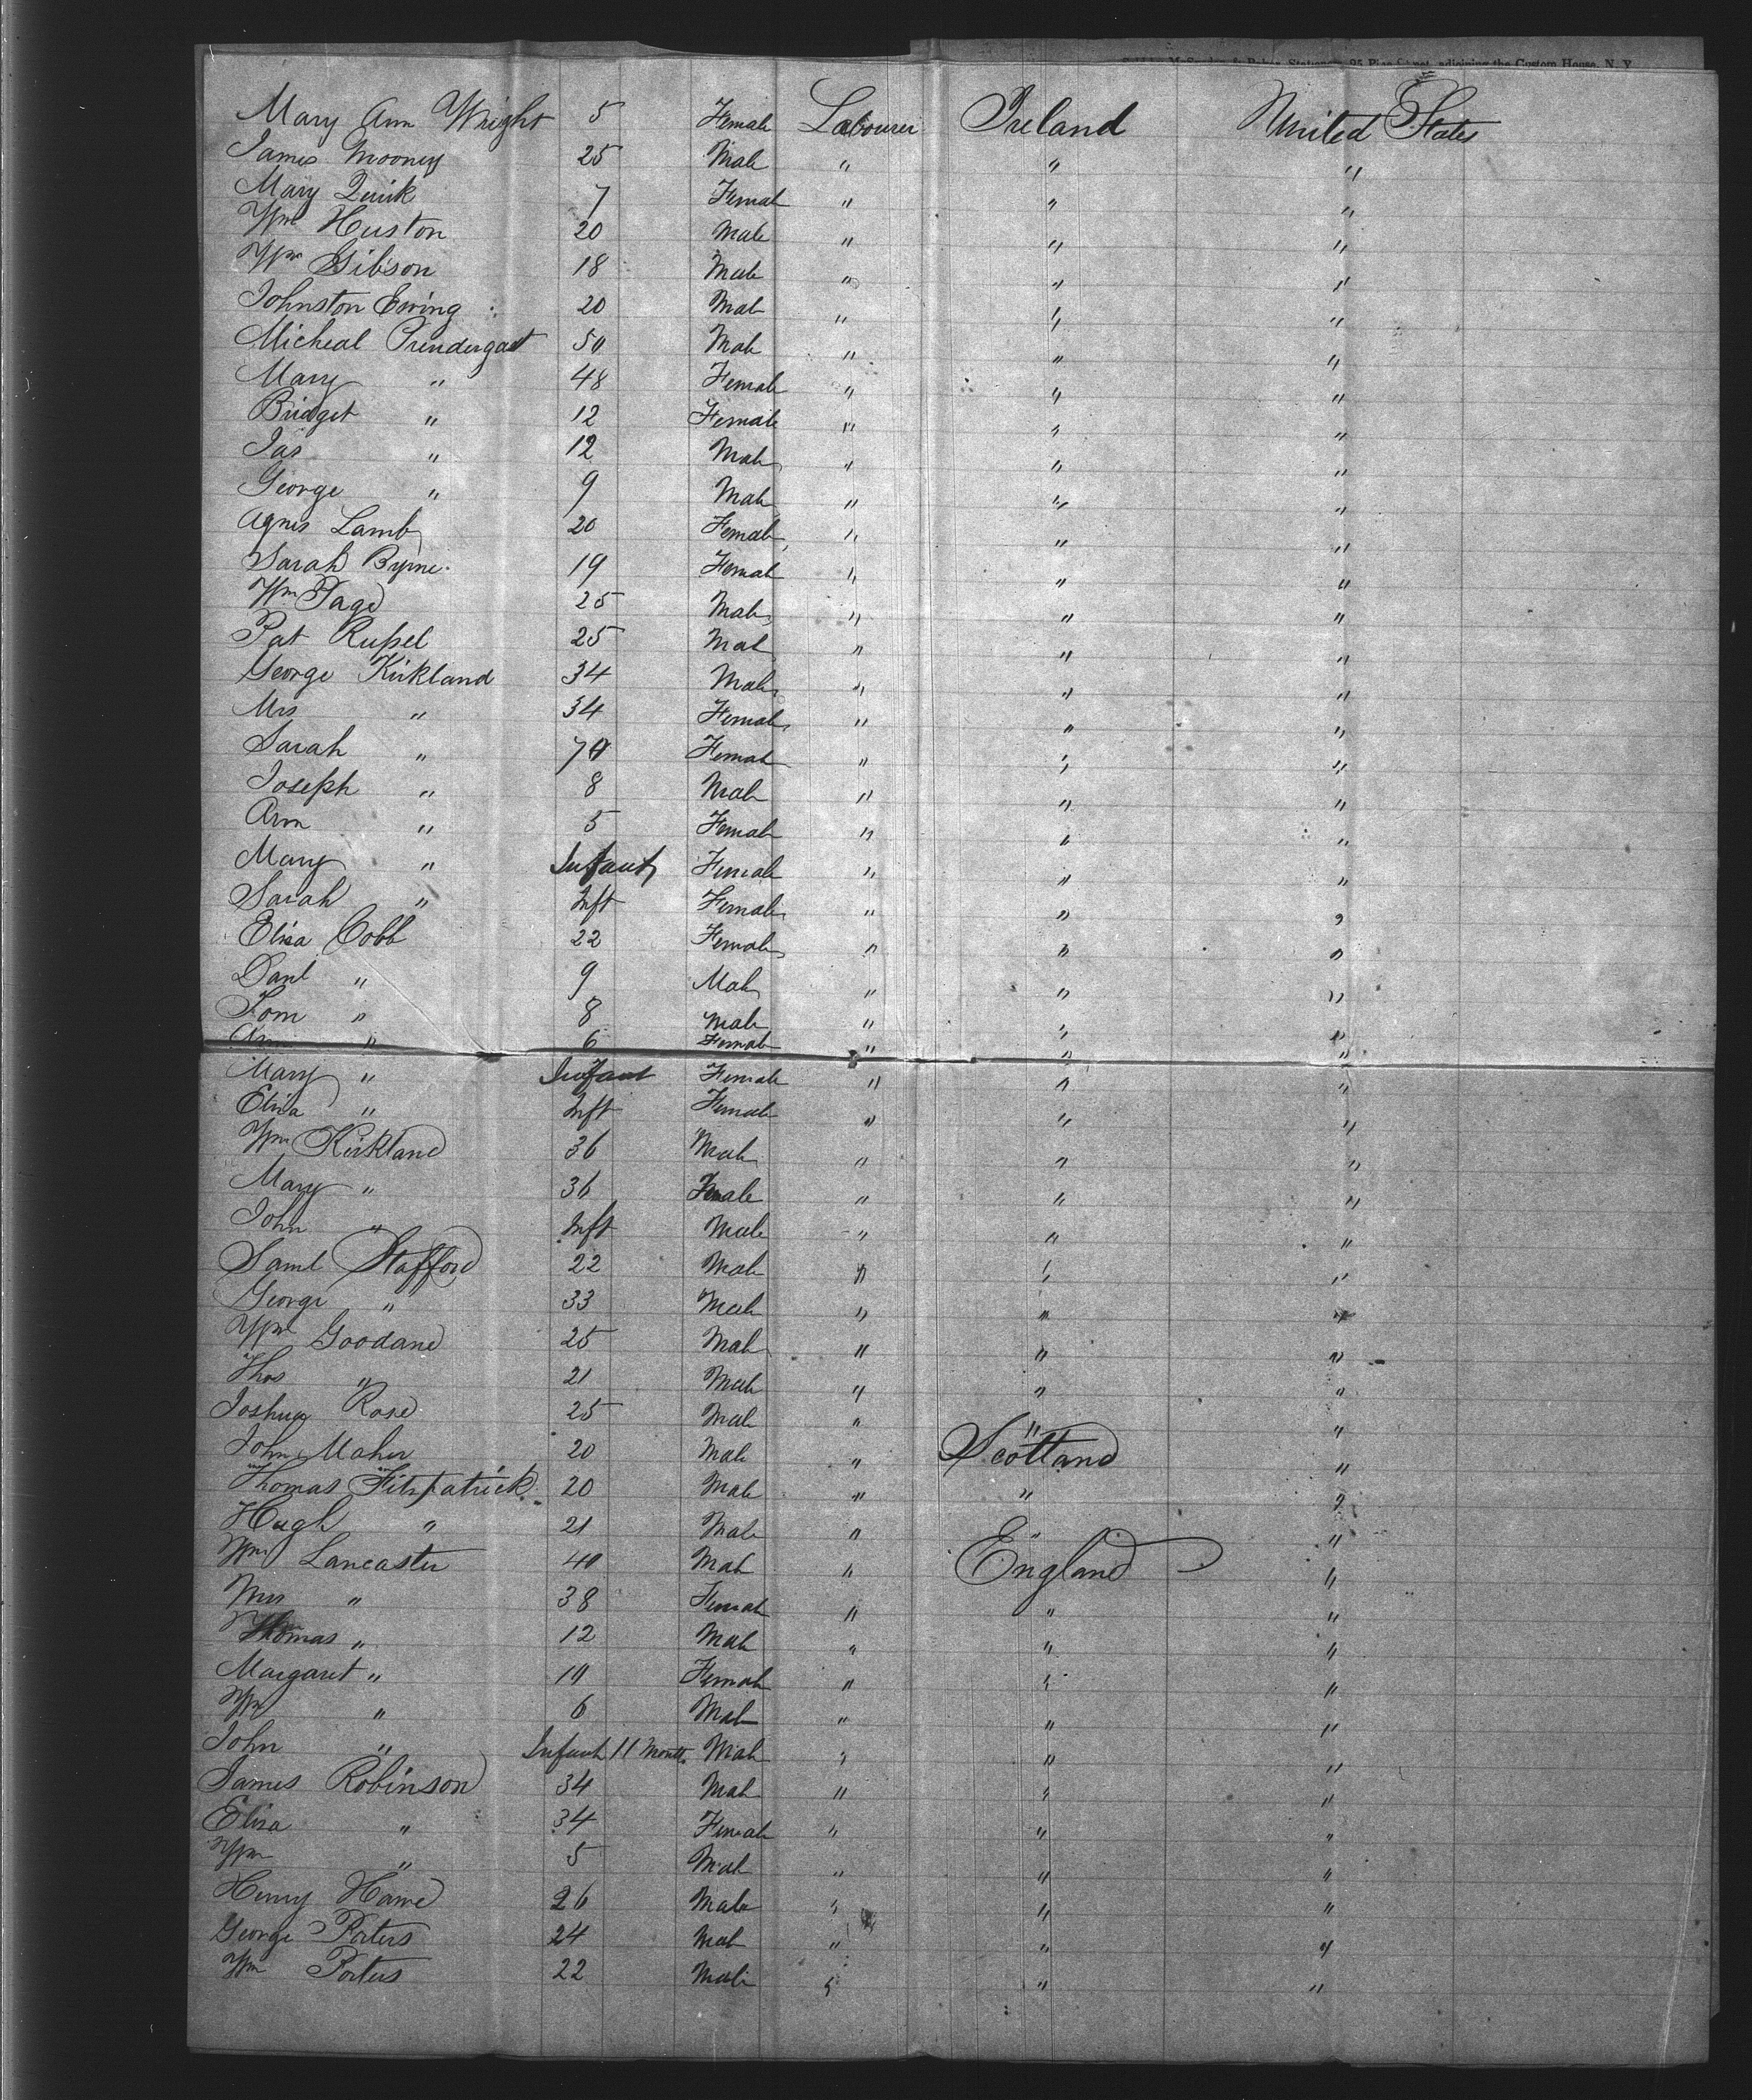 Stationers, 95 Pine Street, adjoining the Custom House, N. Y.
Mary Ann Wright 5 Female Labourer Ireland United States
James Mooney 25 Male " " "
Mary Quirk 7 Female " " "
Wm Huston 20 Male " " "
Wm Gibson 18 Male " " "
Johnston Ewing 20 Male " " "
Micheal Prendergast 50 Male " " "
Mary " 48 Female " " "
Bridget " 12 Female " " "
Jas " 12 Male " " "
George " 9 Male " " "
Agnes Lamb 20 Female " " "
Sarah Byrne 19 Female " " "
Wm Page 25 Male " " "
Pat Russel 25 Male " " "
George Kirkland 34 Male " " "
Mrs " 34 Female " " "
Sarah " 70 Female " " "
Joseph " 8 Male " " "
Ann " 5 Female " " "
Mary " Infant Female " " "
Sarah " Inft Female " " "
Eliza Cobb 22 Female " " "
Danl " 9 Male " " "
Tom " 8 Male " " "
" 6 Female " " "
Mary " Infant Female " " "
Eliza " Inft Female " " "
Wm Kirkland 36 Male " " "
Mary " 36 Female " " "
John " Inft Male " " "
Saml Stafford 22 Male " " "
George " 33 Male " " "
Wm Goodane 25 Male " " "
Thos " 21 Male " " "
Joshua Rose 25 Male " " "
John Maher 20 Male " Scotland "
Thomas Fitzpatrick 20 Male " " "
Hugh " 21 Male " " "
Wm Lancaster 40 Male " England "
Mrs " 38 Female " " "
Thomas " 12 Male " " "
Margaret " 10 Female " " "
Wm " 6 Male " " "
John " Infant 11 Months Male " " "
James Robinson 34 Male " " "
Eliza " 34 Female " " "
Wm " 5 Male " " "
Henry Hame 26 Male " " "
George Porters 24 Male " " "
Wm Porters 22 Male " " "